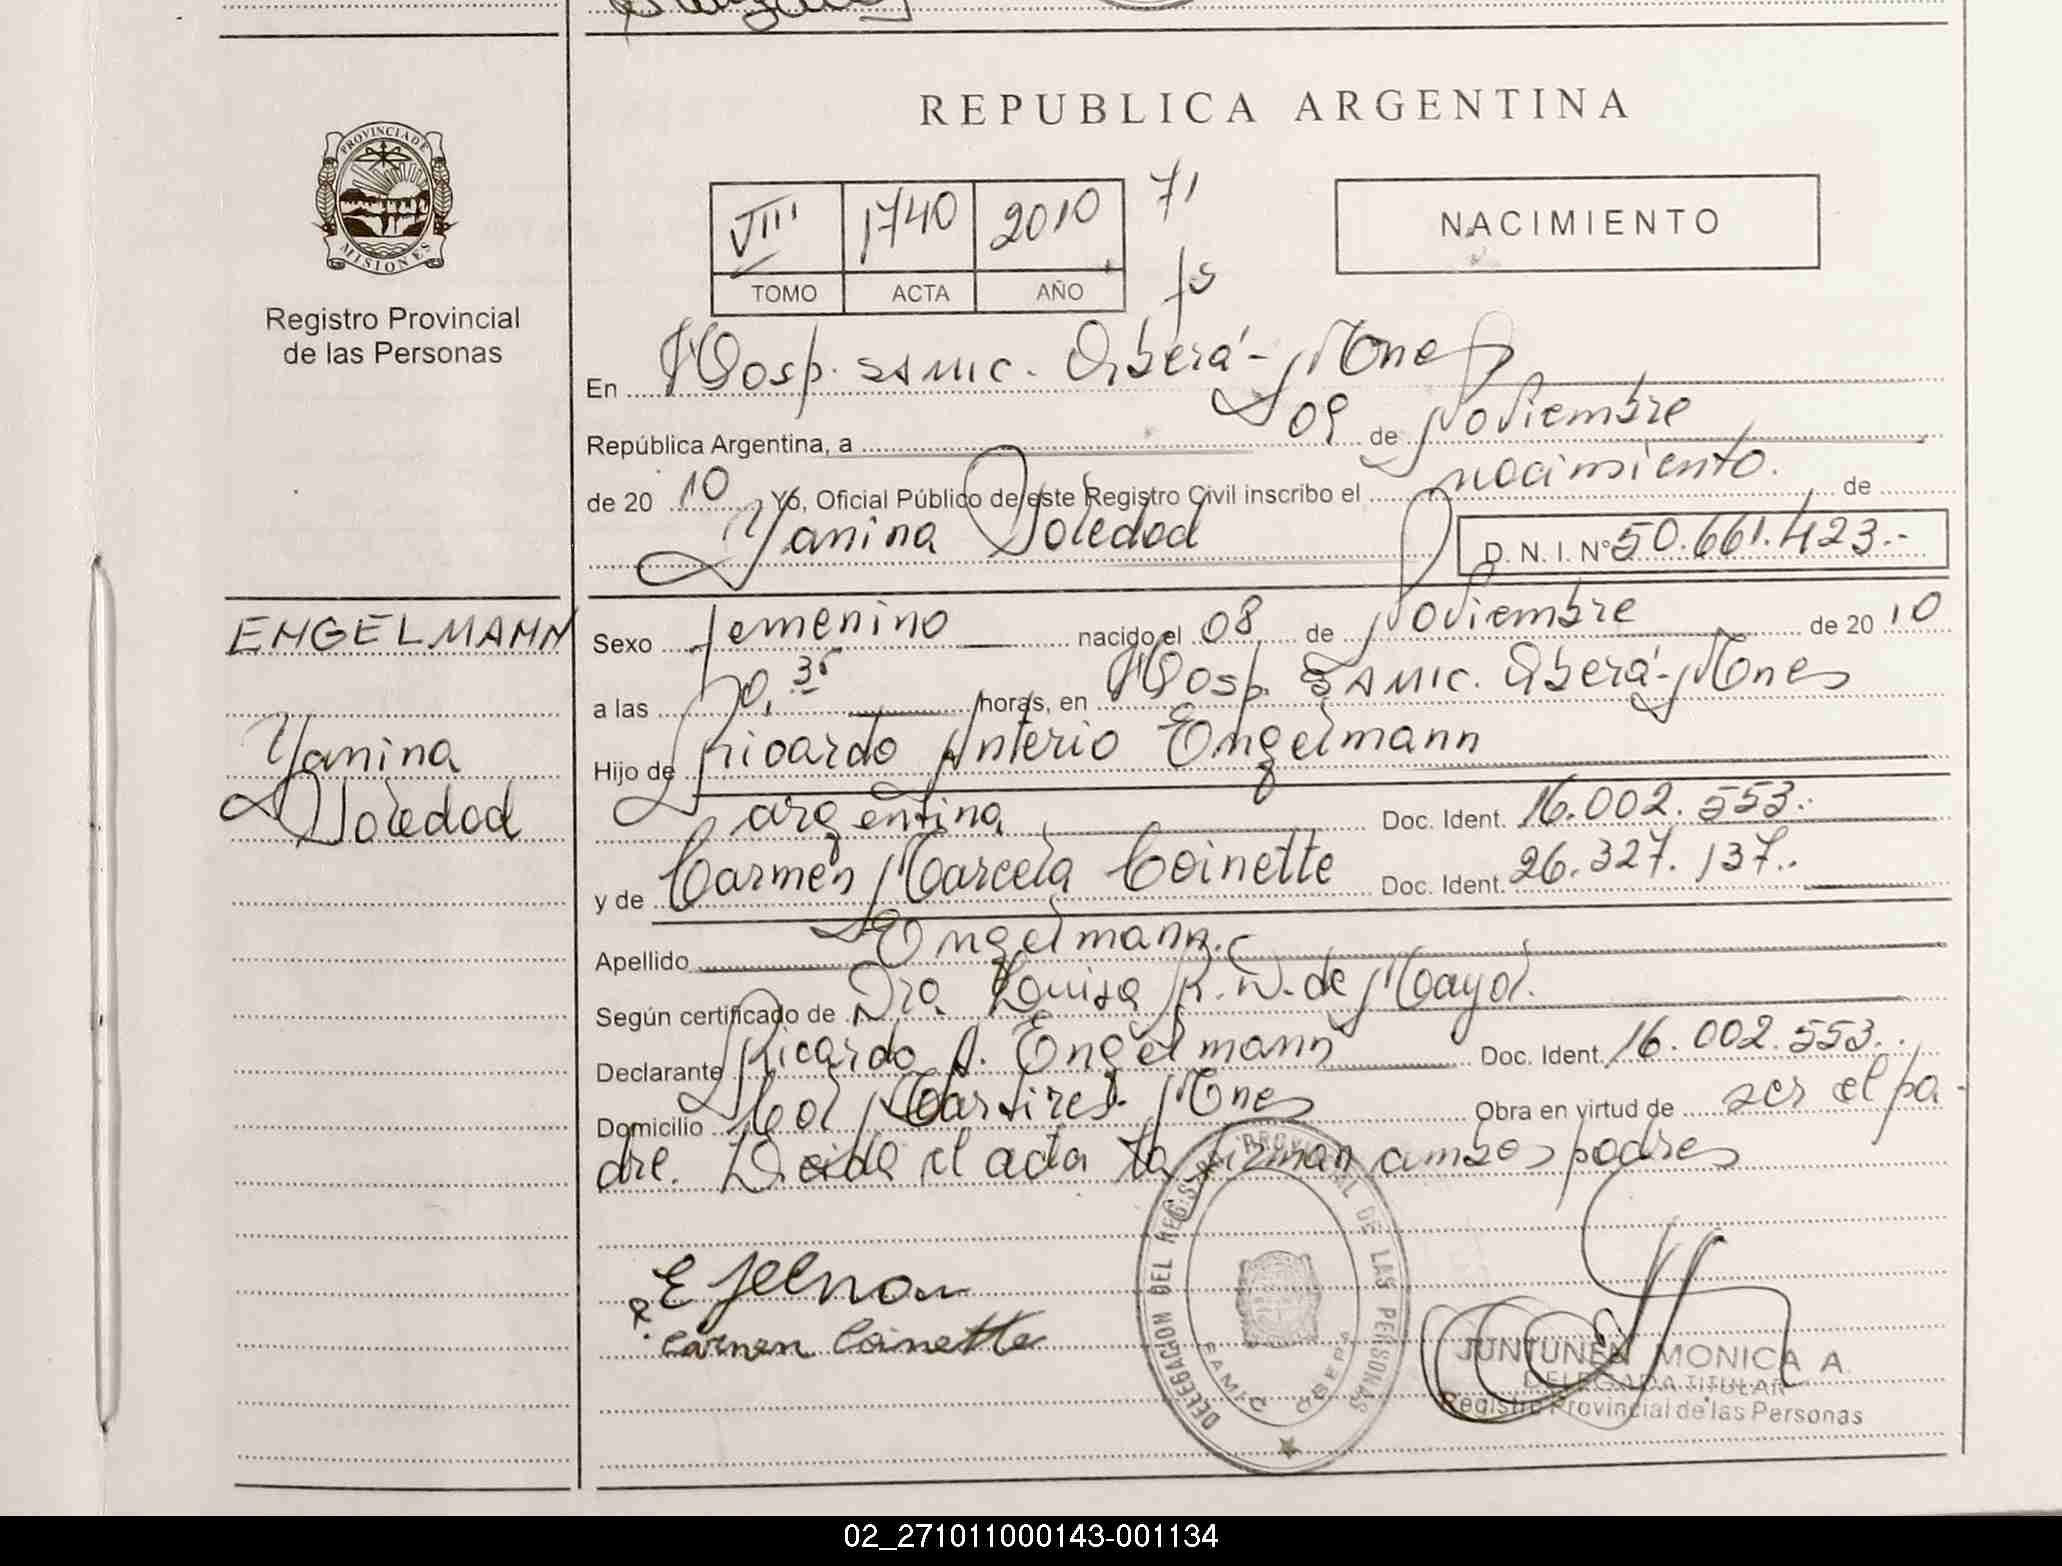 REPUBLICA ARGENTINA
PROVINCIA DE
MISIONES
Registro Provincial
de las Personas
VIII 1740 2010 71
TOMO ACTA AÑO fs
NACIMIENTO
En Hosp. SAMIC. Oberá - Mnes
República Argentina, a 09 de Noviembre
de 20 10 Yó, Oficial Público de este Registro Civil inscribo el nacimiento. de
Yanina Soledad D. N. I. Nº 50.661.423.-
ENGELMANN
Yanina
Soledad
Sexo femenino nacido el 08 de Noviembre de 20 10
a las horas, en Hosp. SAMIC. Oberá - Mnes
Hijo de Ricardo Anterio Engelmann
argentina Doc. Ident. 16.002.553.
y de Carmen Marcela Coinette Doc. Ident. 26.327.137.
Apellido Engelmann.
Según certificado de Dra. Luisa R. W. de Mayol.
Declarante Ricardo A. Engelmann Doc. Ident. 16.002.553.
Domicilio Col Martires - Mnes Obra en virtud de ser el pa-
dre. Leida el acta la firman ambos padres
Carmen Coinette
DELEGACION DEL REGISTRO PROVINCIAL DE LAS PERSONAS
SAMIC OBERA
JUNTUNEN MONICA A.
DELEGADA TITULAR
Registro Provincial de las Personas
02_271011000143-001134